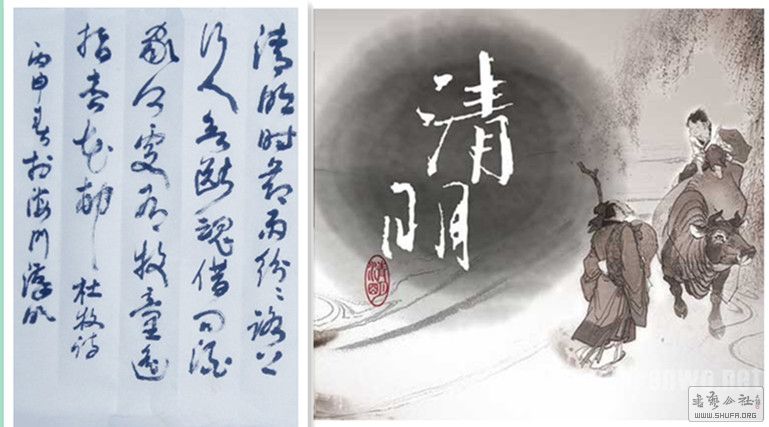 清明时节雨纷纷路上
行人欲断魂借问酒
家何处有牧童遥
指杏花村 杜牧诗
丙申春于海川
清明
清明
书艺公社
WWW.SHUFA.ORG